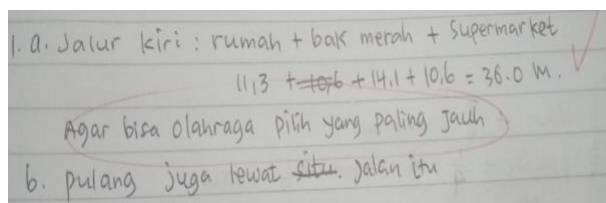 1. a. Jalur kiri : rumah + bak merah + Supermarket
11,3 + 10,6 + 14,1 + 10,6 = 36.0 M.
Agar bisa olahraga pilih yang paling Jauh
b. pulang juga lewat situ. Jalan itu